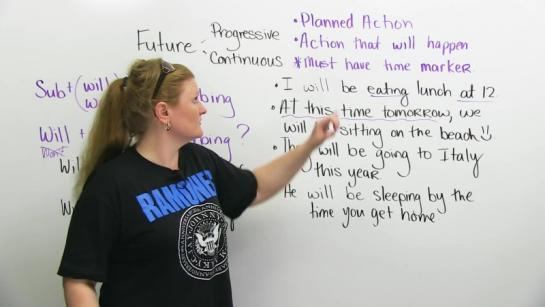 Future: Progressive
Continuous
• Planned Action
• Action that will happen
* Must have time marker
Sub + (will
bing
Will +
bing ?
Won't
Wil
W
• I will be eating lunch at 12
• At this time tomorrow, we
will sitting on the beach
• They will be going to Italy
this year
He will be sleeping by the
time you get home
RAMONES